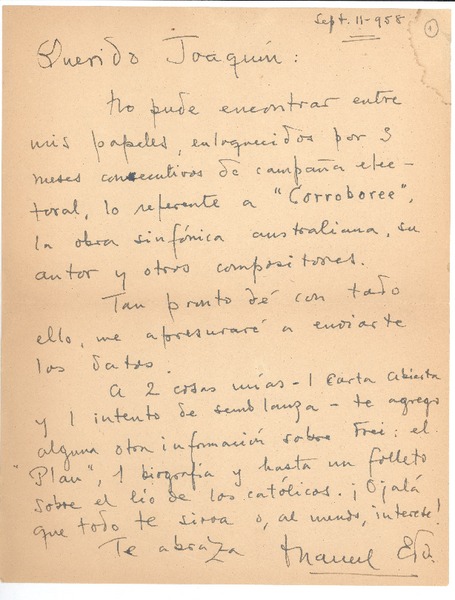 Sept. 11-958
1
Querido Joaquín:
No pude encontrar entre
mis papeles, enloquecidos por 3
meses consecutivos de campaña elec-
toral, lo referente a "Corroboree",
la obra sinfónica australiana, su
autor y otros compositores.
Tan pronto dé con todo
ello, me apresuraré a enviarte
los datos.
A 2 cosas mías - 1 Carta Abierta
y 1 intento de semblanza - te agrego
alguna otra información sobre Frei: el
"Plan", 1 biografía y hasta un folleto
sobre el lío de los católicos. ¡Ojalá
que todo te sirva o, al menos, interese!
Te abraza Manuel